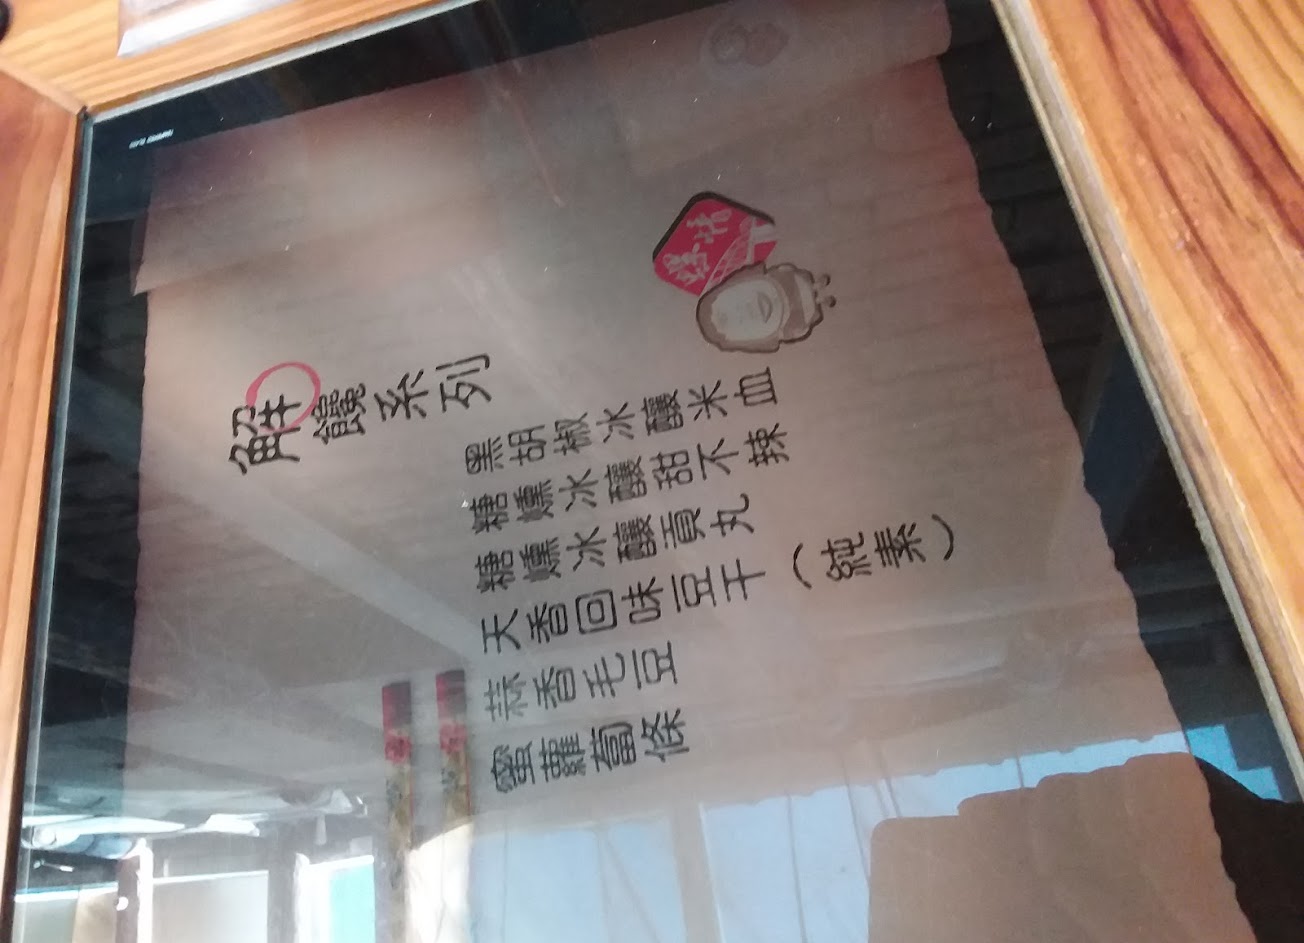 解饞系列
黑胡椒冰釀米血
糖燻冰釀甜不辣
糖燻冰釀貢丸
天香回味豆干(純素)
蒜香毛豆
蜜蘿蔔條